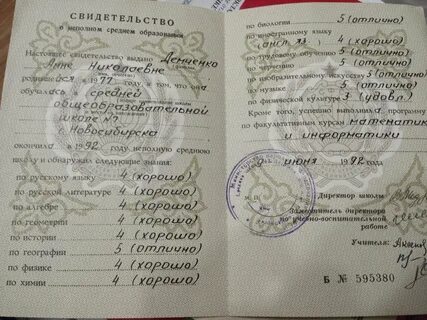 СВИДЕТЕЛЬСТВО
о неполном среднем образовании
Настоящее свидетельство выдано Демченко
Анне Николаевне
родившейся в 1977 году, в том, что она
обучалась в средней
общеобразовательной
школе №7
Новосибирска
окончила в 1992 году неполную среднюю
школу и обнаружил следующие знания:
по русскому языку 4 (хорошо)
по русской литературе 4 (хорошо)
по алгебре 4 (хорошо)
по геометрии 4 (хорошо)
по истории 4 (хорошо)
по географии 5 (отлично)
по физике 4 (хорошо)
по химии 4 (хорошо)
по биологии 5 (отлично)
по иностранному языку
4 (хорошо)
по трудовому обучению 5 (отлично)
по черчению 5 (отлично)
по изобразительному искусству 5 (отлично)
по музыке 5 (отлично)
по физической культуре 3 (удовл.)
Кроме того, успешно выполнила программу
по факультативным курсам математика
и информатики
июня 1992 года
Директор школы
Заместитель директора
по учебно-воспитательной
работе
Учителя:
Б № 595380